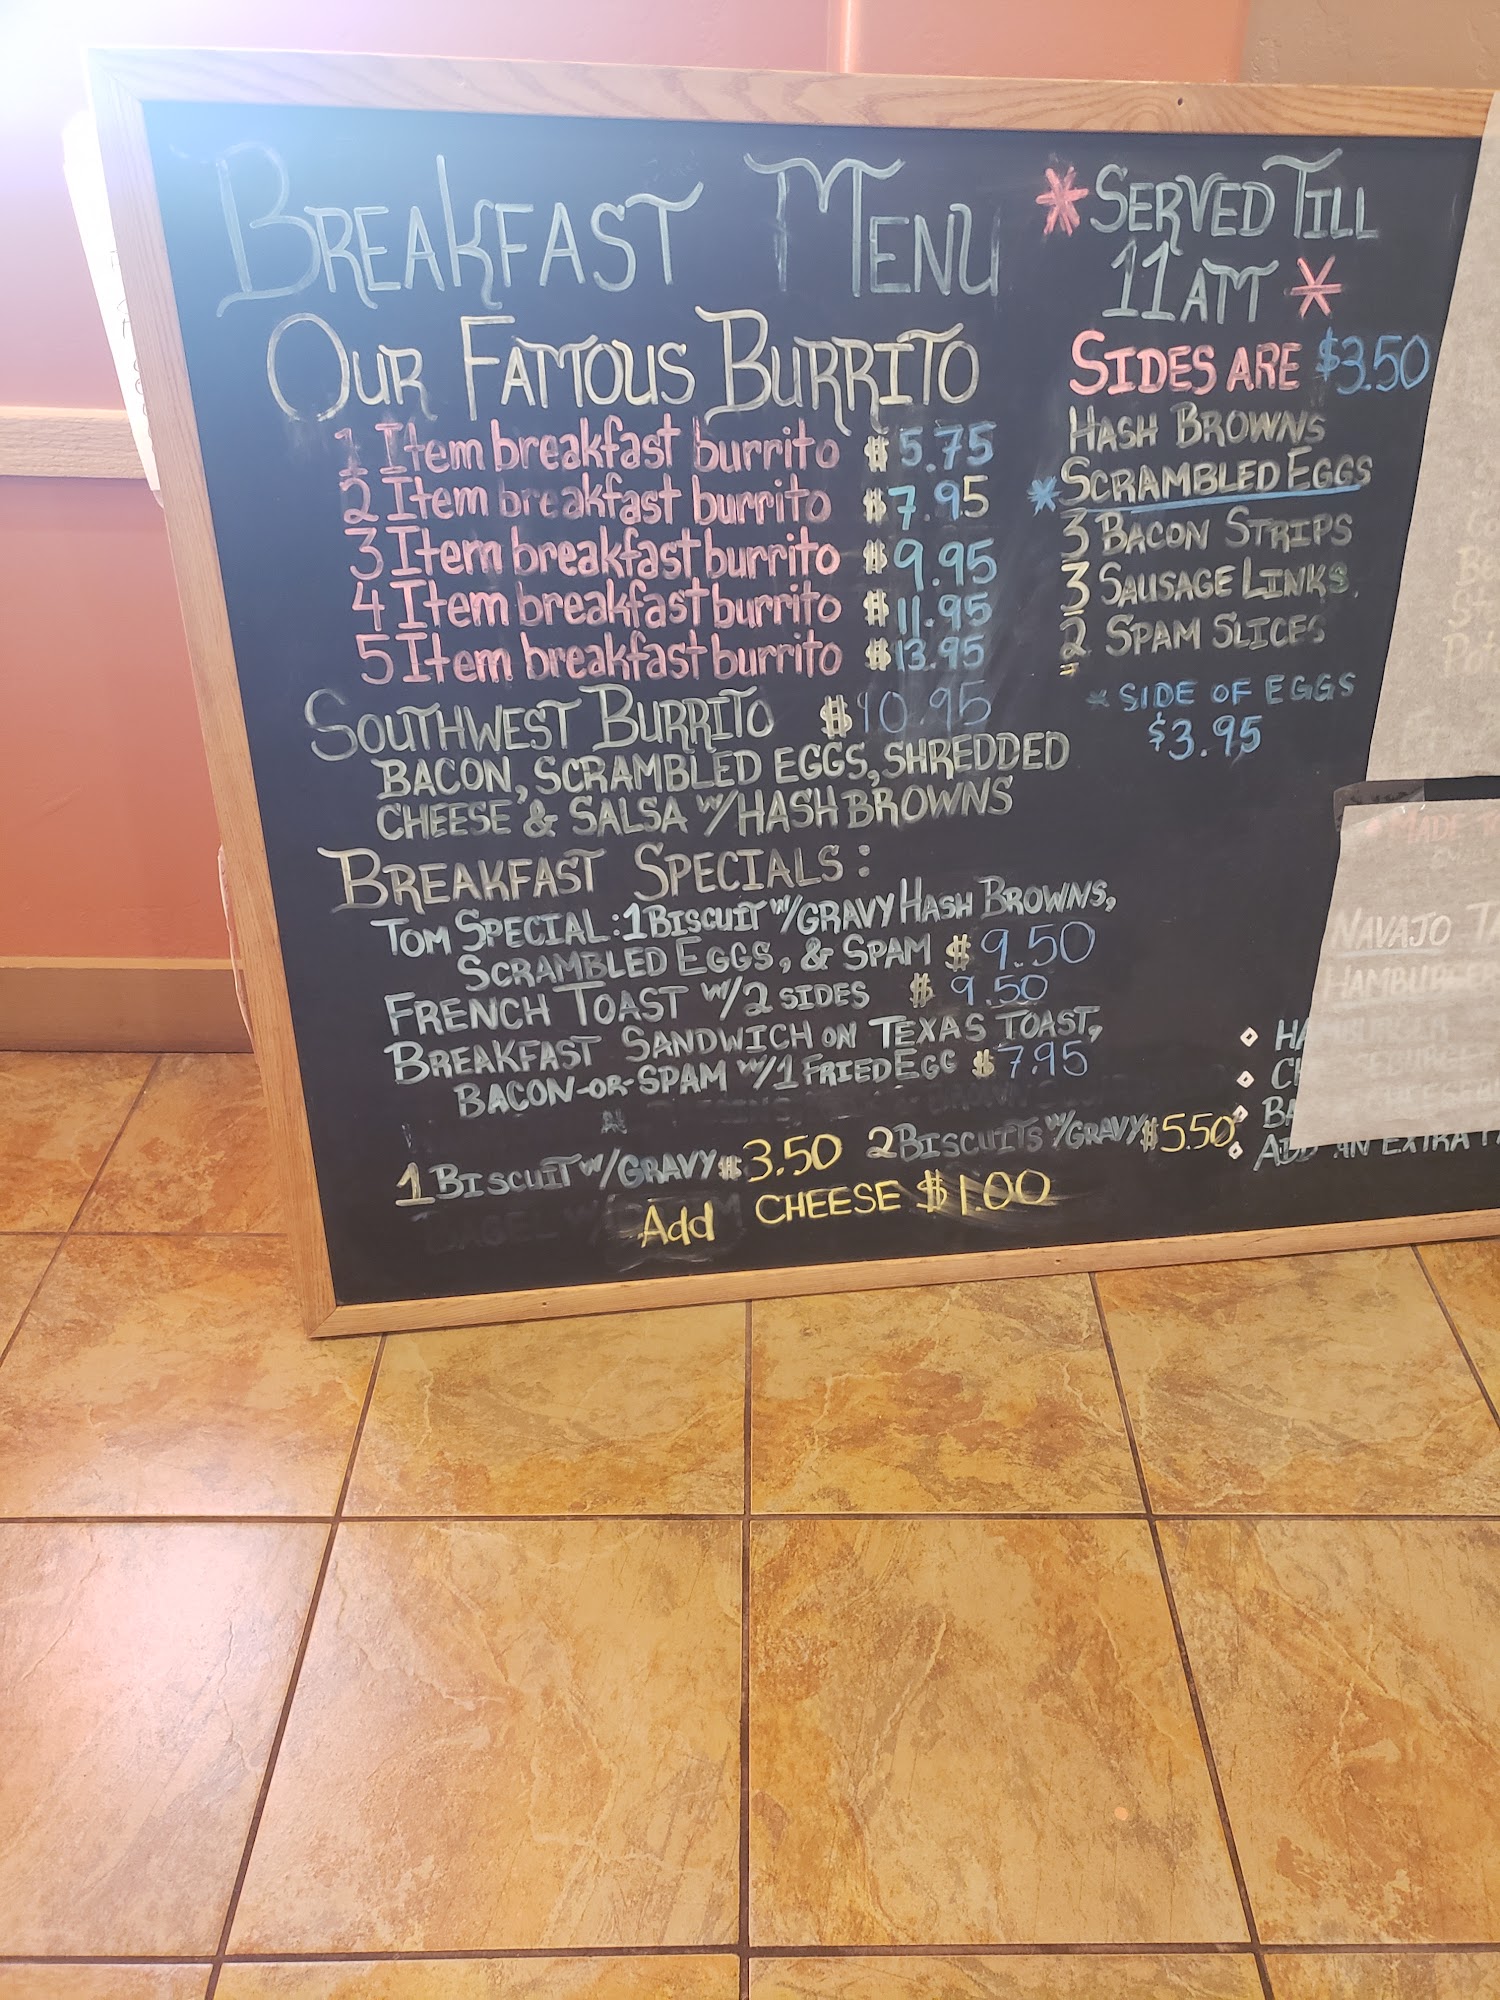 BREAKFAST MENU
OUR FAMOUS BURRITO
1 Item breakfast burrito $5.75
2 Item breakfast burrito $7.95
3 Item breakfast burrito $9.95
4 Item breakfast burrito $11.95
5 Item breakfast burrito $13.95
SOUTHWEST BURRITO $10.95
BACON, SCRAMBLED EGGS, SHREDDED
CHEESE & SALSA W/HASH BROWNS
BREAKFAST SPECIALS:
TOM SPECIAL: 1 BISCUIT W/GRAVY HASH BROWNS,
SCRAMBLED EGGS, & SPAM $9.50
FRENCH TOAST W/2 SIDES $9.50
BREAKFAST SANDWICH ON TEXAS TOAST,
BACON-OR-SPAM W/1 FRIED EGG $7.95
1 BISCUIT W/GRAVY $3.50 2 BISCUITS W/GRAVY $5.50
Add CHEESE $1.00
*SERVED TILL
11 AM*
SIDES ARE $3.50
HASH BROWNS
*SCRAMBLED EGGS
3 BACON STRIPS
3 SAUSAGE LINKS
2 SPAM SLICES
* SIDE OF EGGS
$3.95
MADE
NAVAJO
HAMBURGER
ADD AN EXTRA